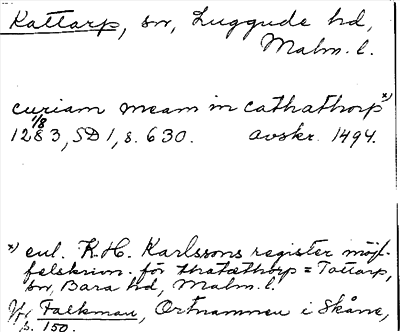 Kattarp, sn, Luggude hd,
Malm. l.
curiam meam in cathathorp x)
1/8
1283, SD 1, s. 630. avskr. 1494.
x) enl. K.H. Karlssons register möjl.
felskrivn. för thatæthorp = Tottarp,
sn, Bara hd, Malm. l.
Jfr Falkman, Ortnamnen i Skåne,
s. 150.